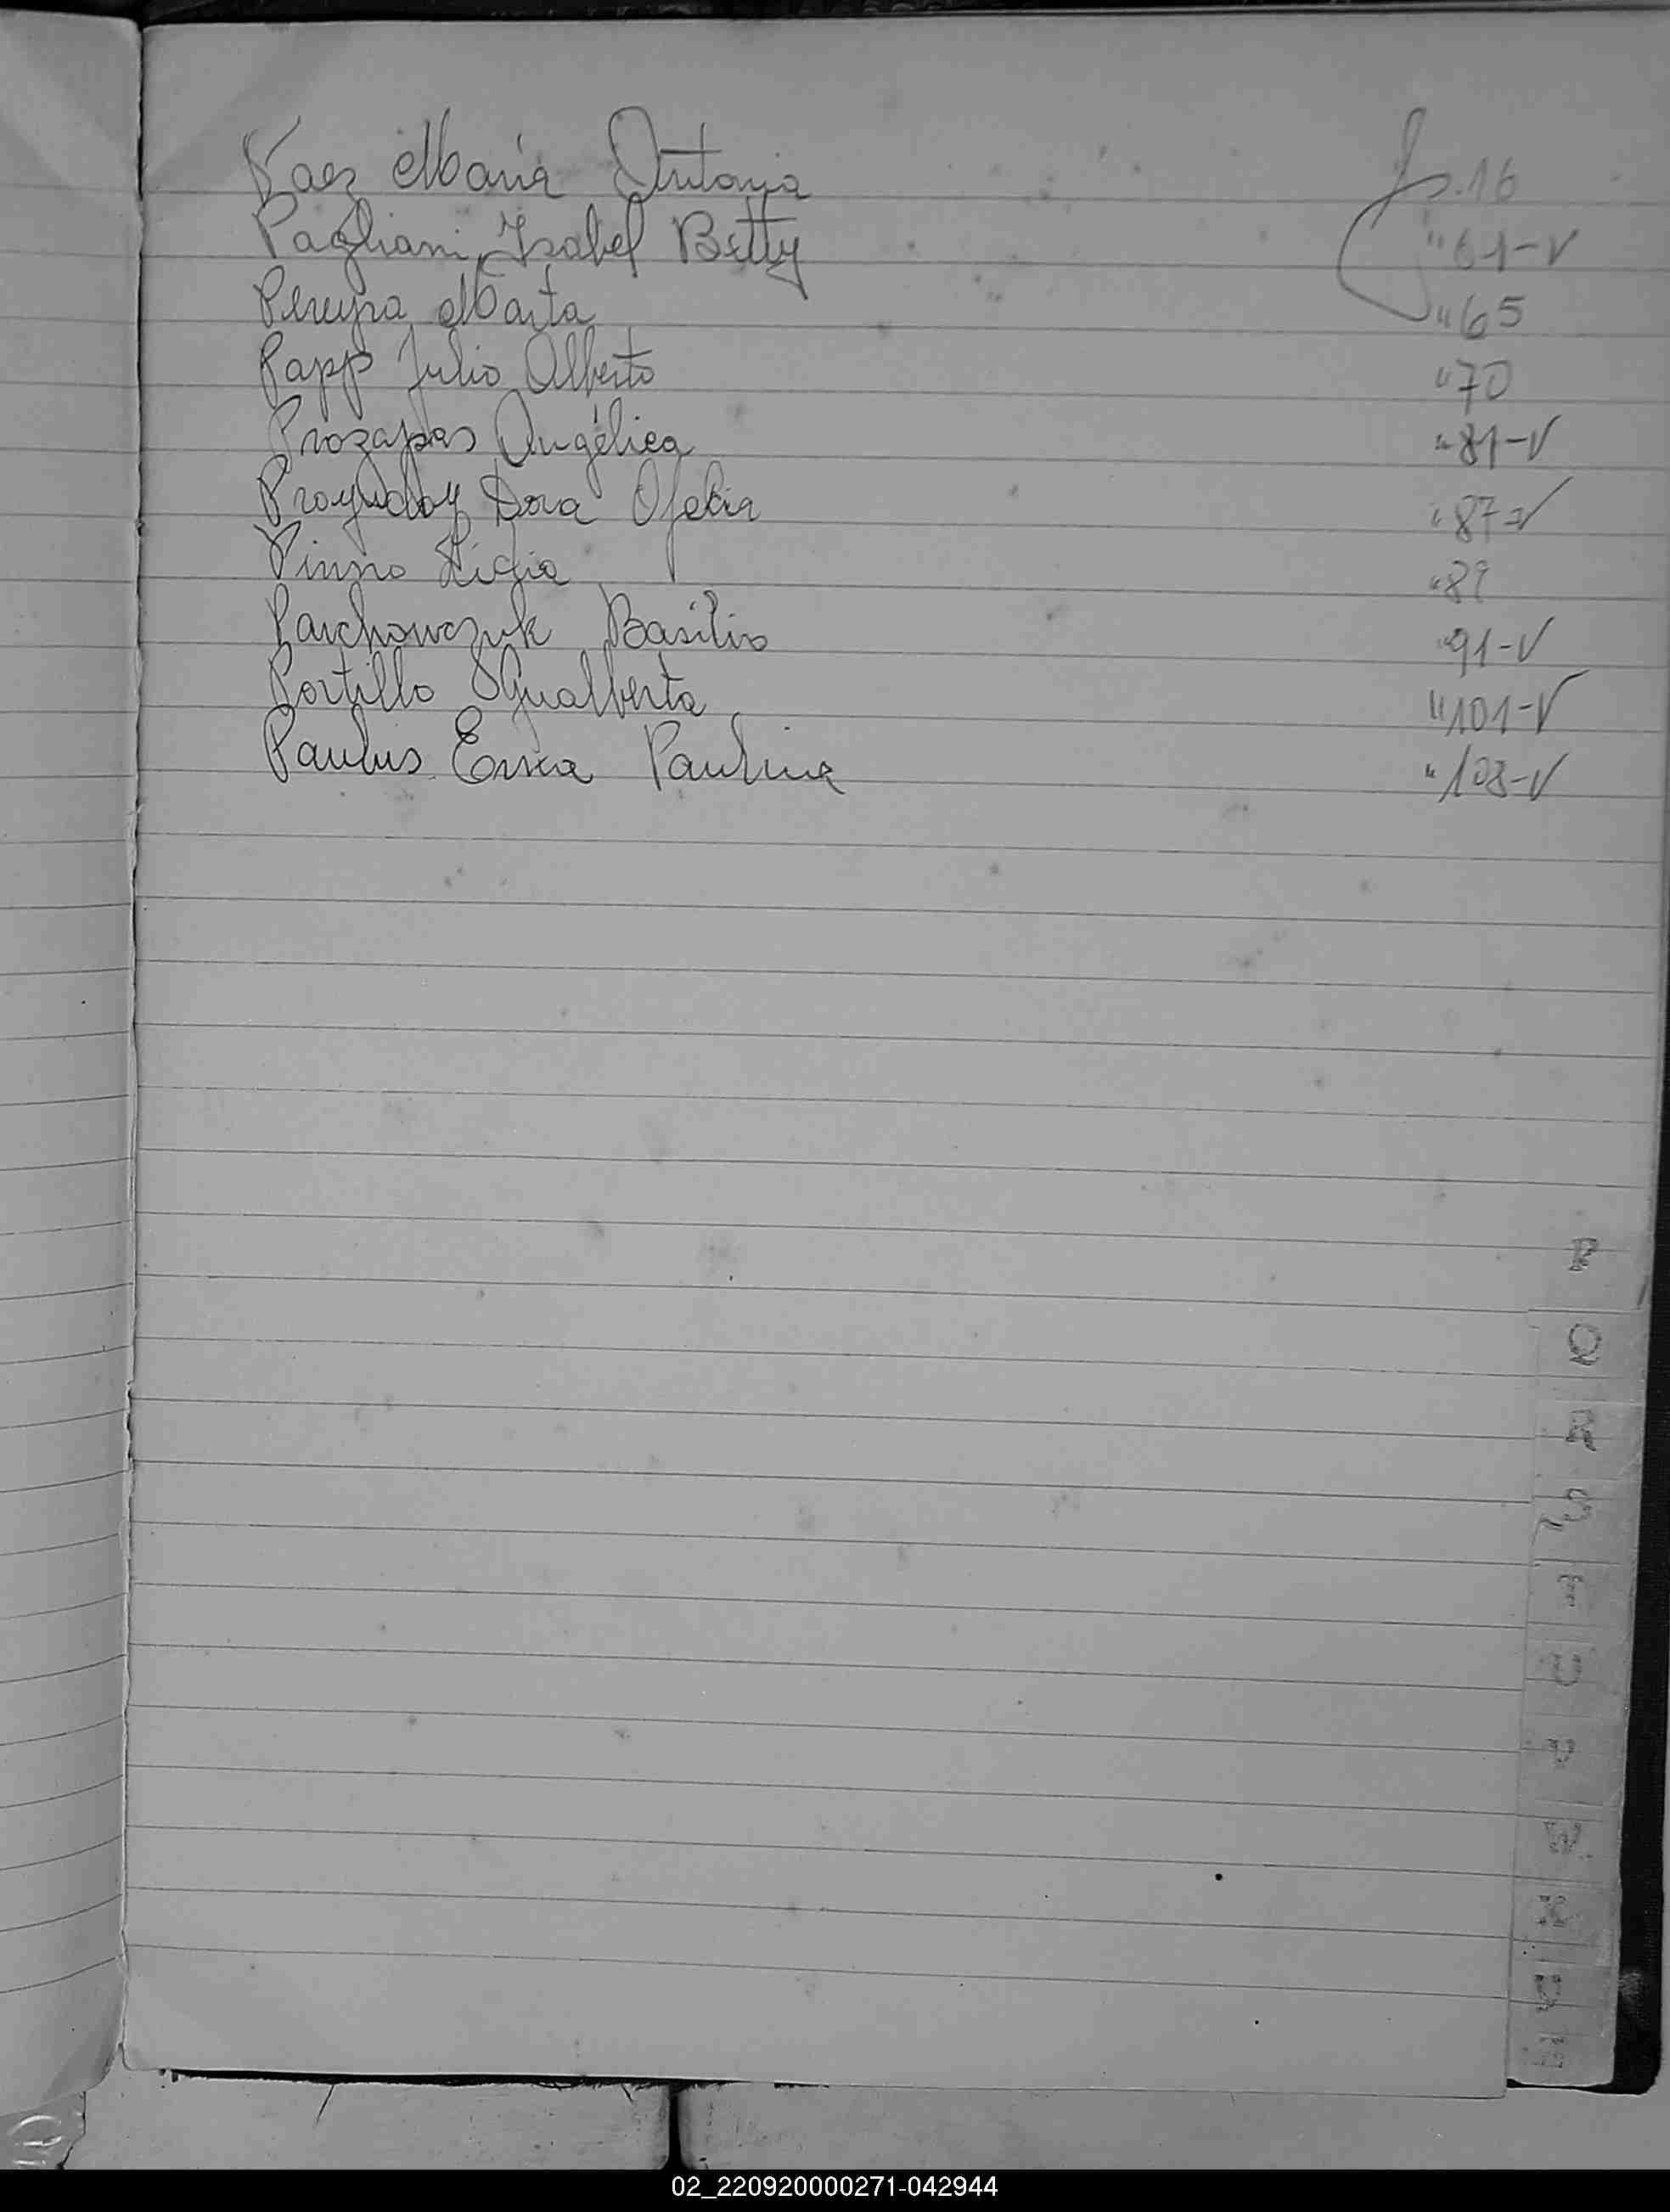 Paez María Antonia fs. 16
Pagliani Isabel Betty "61-V
Pereyra Marta "65
Papp Julio Alberto "70
Prozapas Angélica "81-V
Dora Ofelia "87=V
Pinno Lidia "89
Parchowczuk Basilio "91-V
Portillo Gualberta "101-V
Paulus Erica Paulina "108-V
P
Q
R
S
T
U
V
W
X
02_220920000271-042944